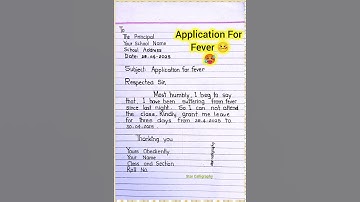 Application For
Fever
To
The Principal
Your School Name
School Address
Date: 28.04.2025
Subject: Application for fever
Respected Sir,
Most humbly, I beg to say
that, I have been suffering from fever
since last night. So I can not attend
the class. Kindly, grant me leave
for three days from 28.4.2025 to
30.04.2025.
Thanking you
Yours Obediently
Your Name
Class and Section
Roll No.
Star Calligraphy